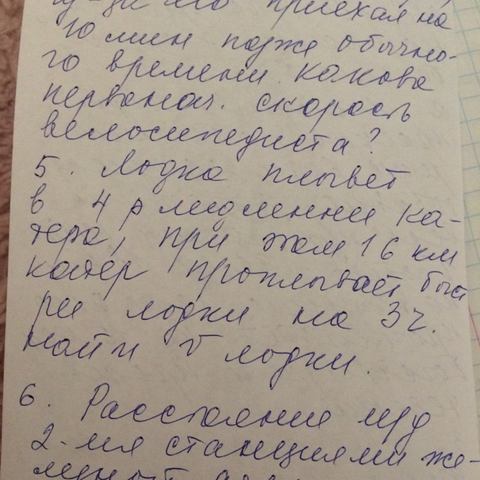 приехал на
10 мин позже обычно-
го времени. Какова
первонач. скорость
велосипедиста?
5. Лодка плывет
в 4 р медленнее ка-
тера, при этом 16 км
катер проплывает быст
рее лодки на 3ч.
Найти v лодки.
6. Расстояние м/д
2-мя станциями же-